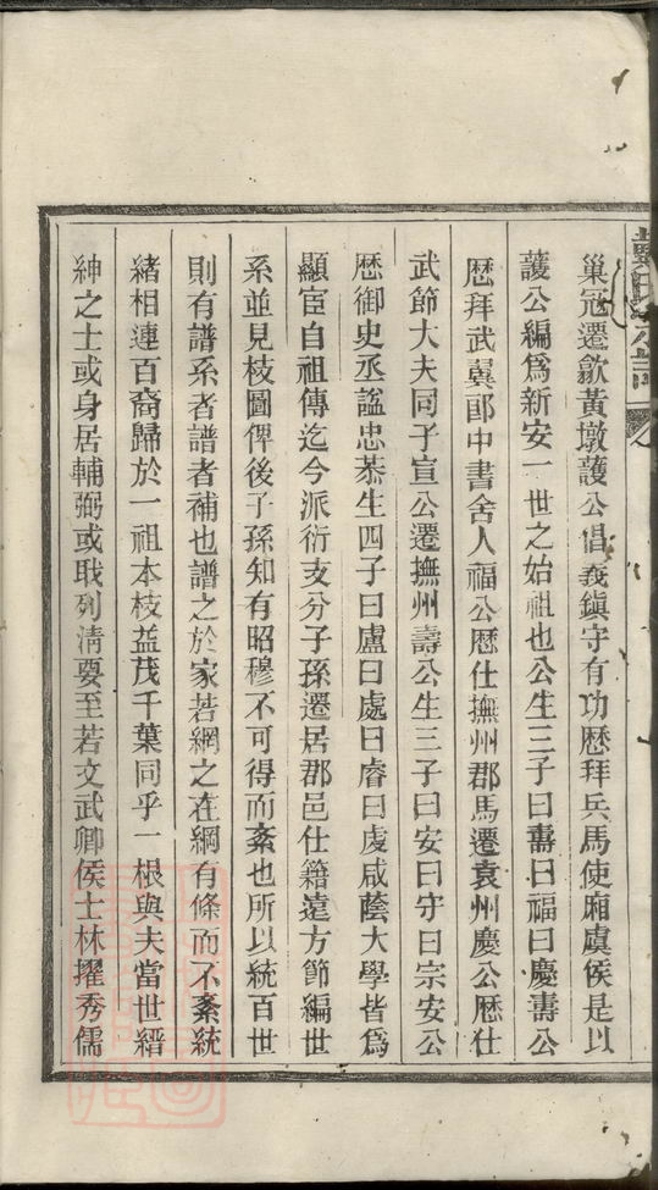 戴氏宗譜
巢冠遷歙黃墩護公倡義鎮守有功歷拜兵馬使廂虞侯是以
護公編爲新安一世之始祖也公生三子曰壽曰福曰慶壽公
歷拜武翼郎中書舍人福公歷仕撫州郡馬遷袁州慶公歷仕
武節大夫同子宣公遷撫州壽公生三子曰安曰守曰宗安公
歷御史丞謚忠恭生四子曰盧曰處曰睿曰虔咸蔭大學皆爲
顯宦自祖傳迄今派衍支分子孫遷居郡邑仕籍遠方節編世
系並見枝圖俾後子孫知有昭穆不可得而紊也所以統百世
則有譜系者譜者補也譜之於家若網之在綱有條而不紊統
緒相連百裔歸於一祖本枝益茂千葉同乎一根與夫當世縉
紳之士或身居輔弼或戢列清要至若文武卿侯士林擢秀儒